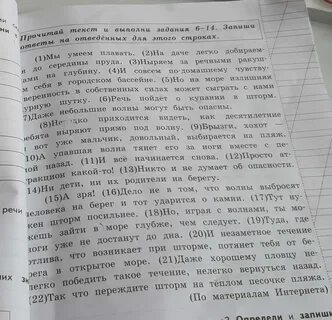 Прочитай текст и выполни задания 6–14. Запиши
ответы на отведённых для этого строках.
(1)Мы умеем плавать. (2)На даче легко добираем-
до середины пруда. (3)Ныряем за речными ракуш-
на глубину. (4)И совсем по-домашнему чувству-
себя в городском бассейне. (5)Но на море излишняя
веренность в собственных силах может сыграть с нами
урную шутку. (6)Речь пойдёт о купании в шторм.
(7)Даже небольшие волны могут быть опасны.
(8)Нередко приходится видеть, как десятилетние
ебята ныряют прямо под волну. (9)Брызги, хохот –
вот уже мальчик, довольный, выбирается на пляж.
(10)А упавшая волна тянет его за ноги вместе с пе-
ной назад. (11)И всё начинается снова. (12)Просто ат-
ракцион какой-то! (13)Никто и не думает об опасности.
(14)Ни дети, ни их родители на берегу.
(15)А зря! (16)Дело не в том, что волны выбросят
человека на берег и тот ударится о камни. (17)Тут ну-
жен шторм посильнее. (18)Но, играя с волнами, ты мо-
жешь зайти в море глубже, чем следует. (19)Туда, где
ноги уже не достанут до дна. (20)И незаметное течение
утлива, что возникает при шторме, потянет тебя от бе-
рега в открытое море. (21)Даже хорошему пловцу не-
легко победить такое течение, нелегко вернуться назад.
(22)Так что переждите шторм на тёплом песочке пляжа.
(По материалам Интернета)
речи
ких
Определи и запиши